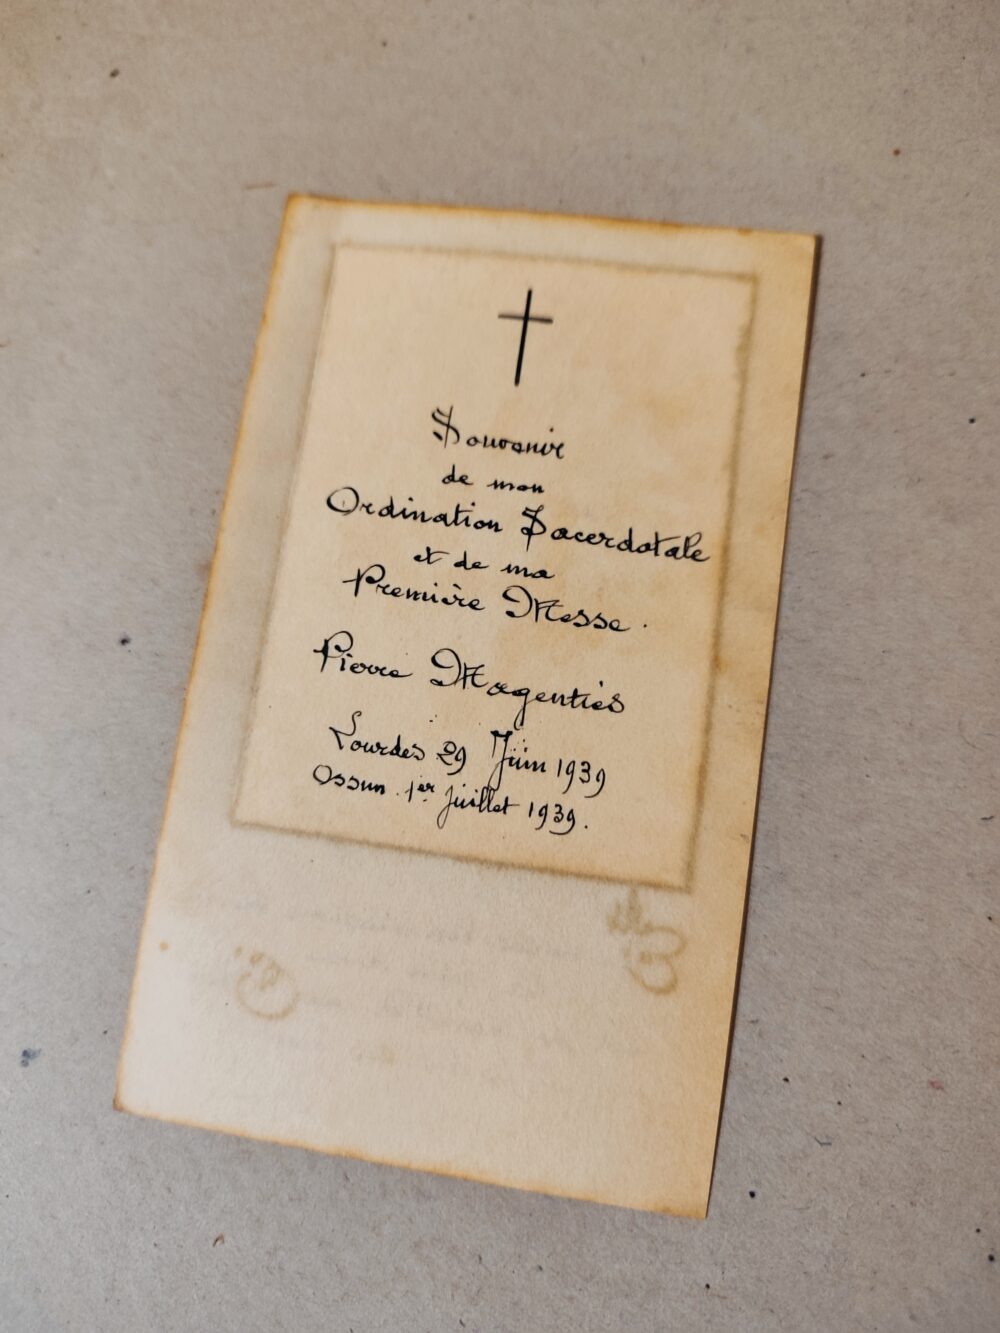 Souvenir
de mon
Ordination Sacerdotale
et de ma
Première Messe.
Pierre Magentiès
Lourdes 29 Juin 1939
Ossun 1er juillet 1939.